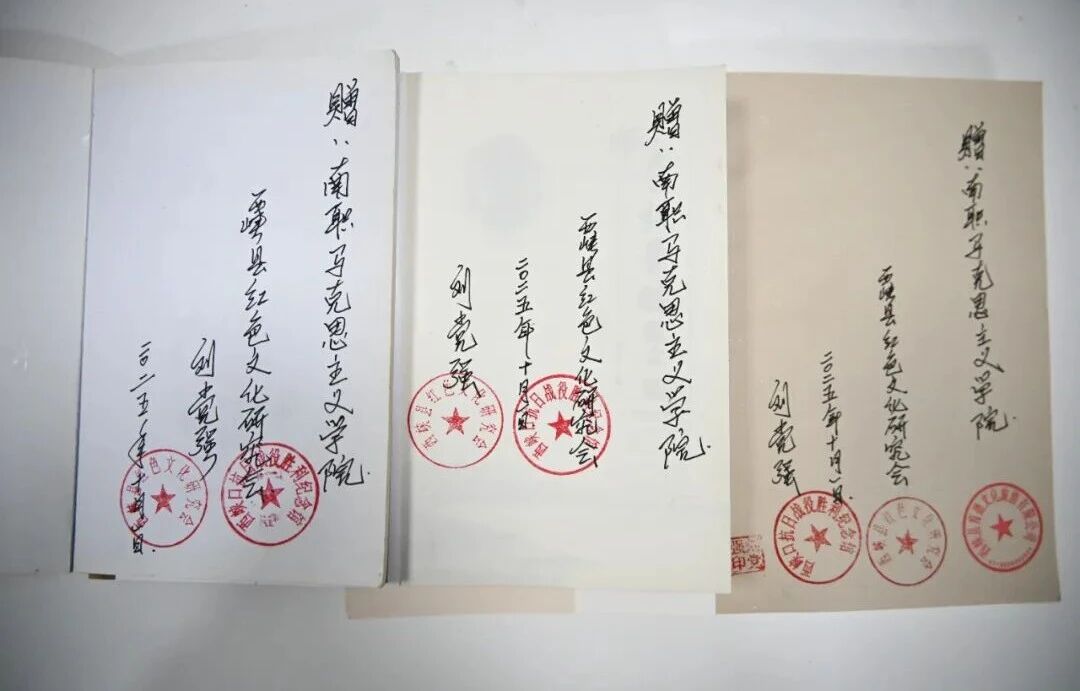 赠:南职马克思主义学院.
西峡县红色文化研究会
刘党强
二〇二五年十月一日.
西峡县红色文化研究会
西峡口抗日战役胜利纪念馆
赠:南职马克思主义学院.
西峡县红色文化研究会
二〇二五年十月一日
刘党强
西峡县红色文化研究会
西峡口抗日战役胜利纪念馆
赠:南职马克思主义学院.
西峡县红色文化研究会
二〇二五年十月一日.
刘党强
西峡口抗日战役胜利纪念馆
西峡县红色文化研究会